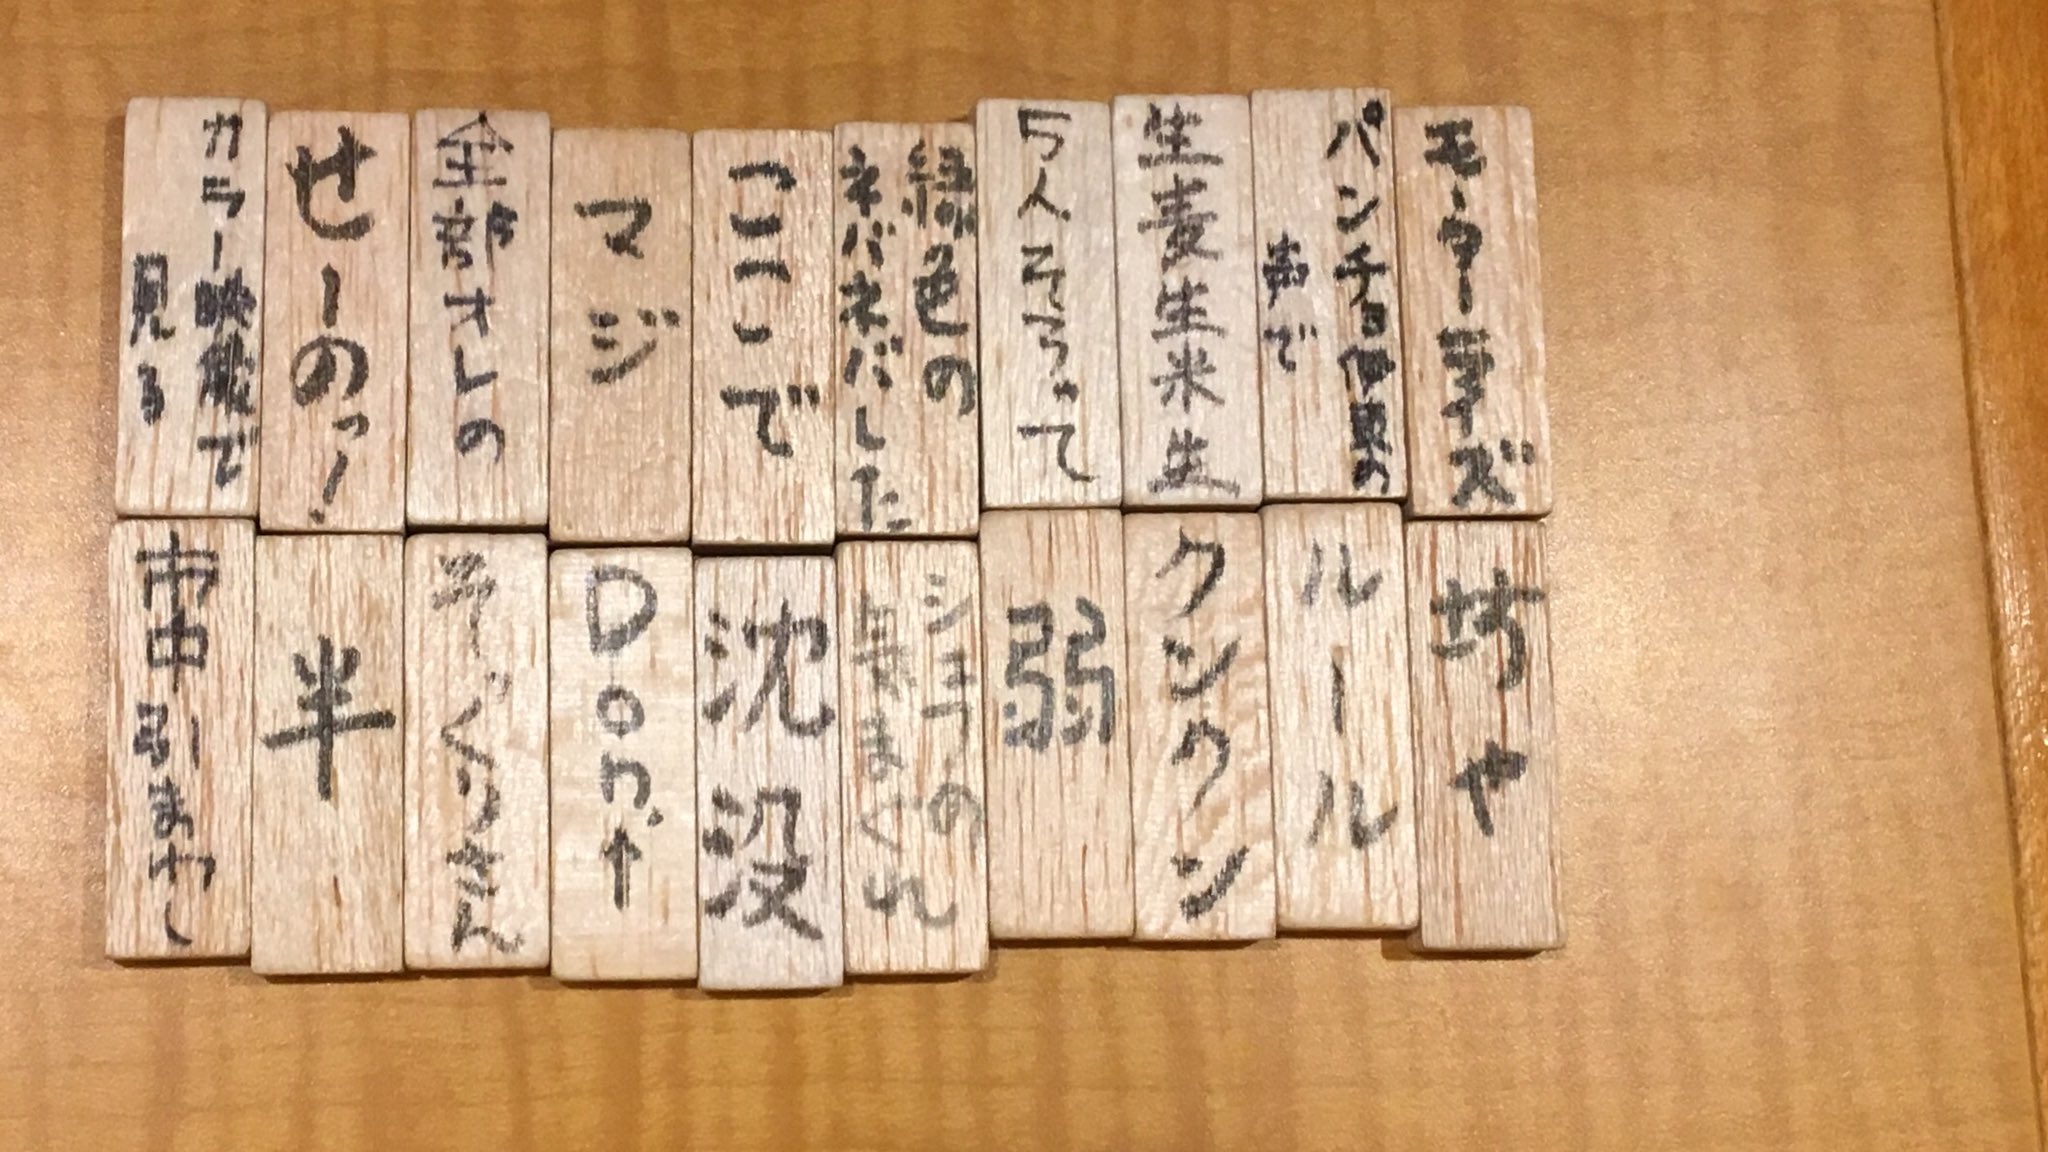 カラー映像で
見る
せーのっ!
全部オレの
マジ
ここで
緑色の
ネバネバした
5人そろって
生麦生米生
パンチョ伊東の
声で
市中引まわし
半
そっくりさん
Don't
沈没
シェフの
気まぐれ
弱
クンクン
ルール
坊や